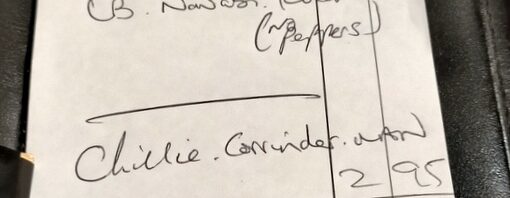 CB. Nawabi.
(~Peppers)
Chillie. Corrinder. NAN
2 95